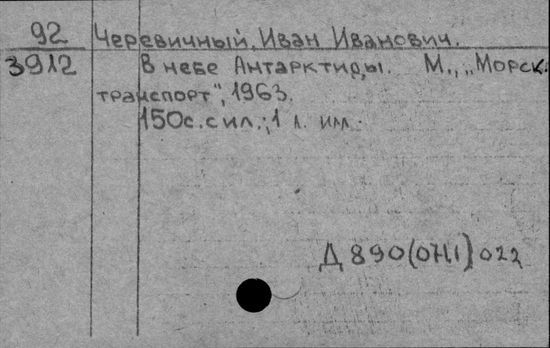 92 Черевичный, Иван Иванович.
3912 В небе Антарктиды. М., „Морск.
транспорт", 1963.
150с. с ил.; 1 л. илл.
Д 890(07И1)022